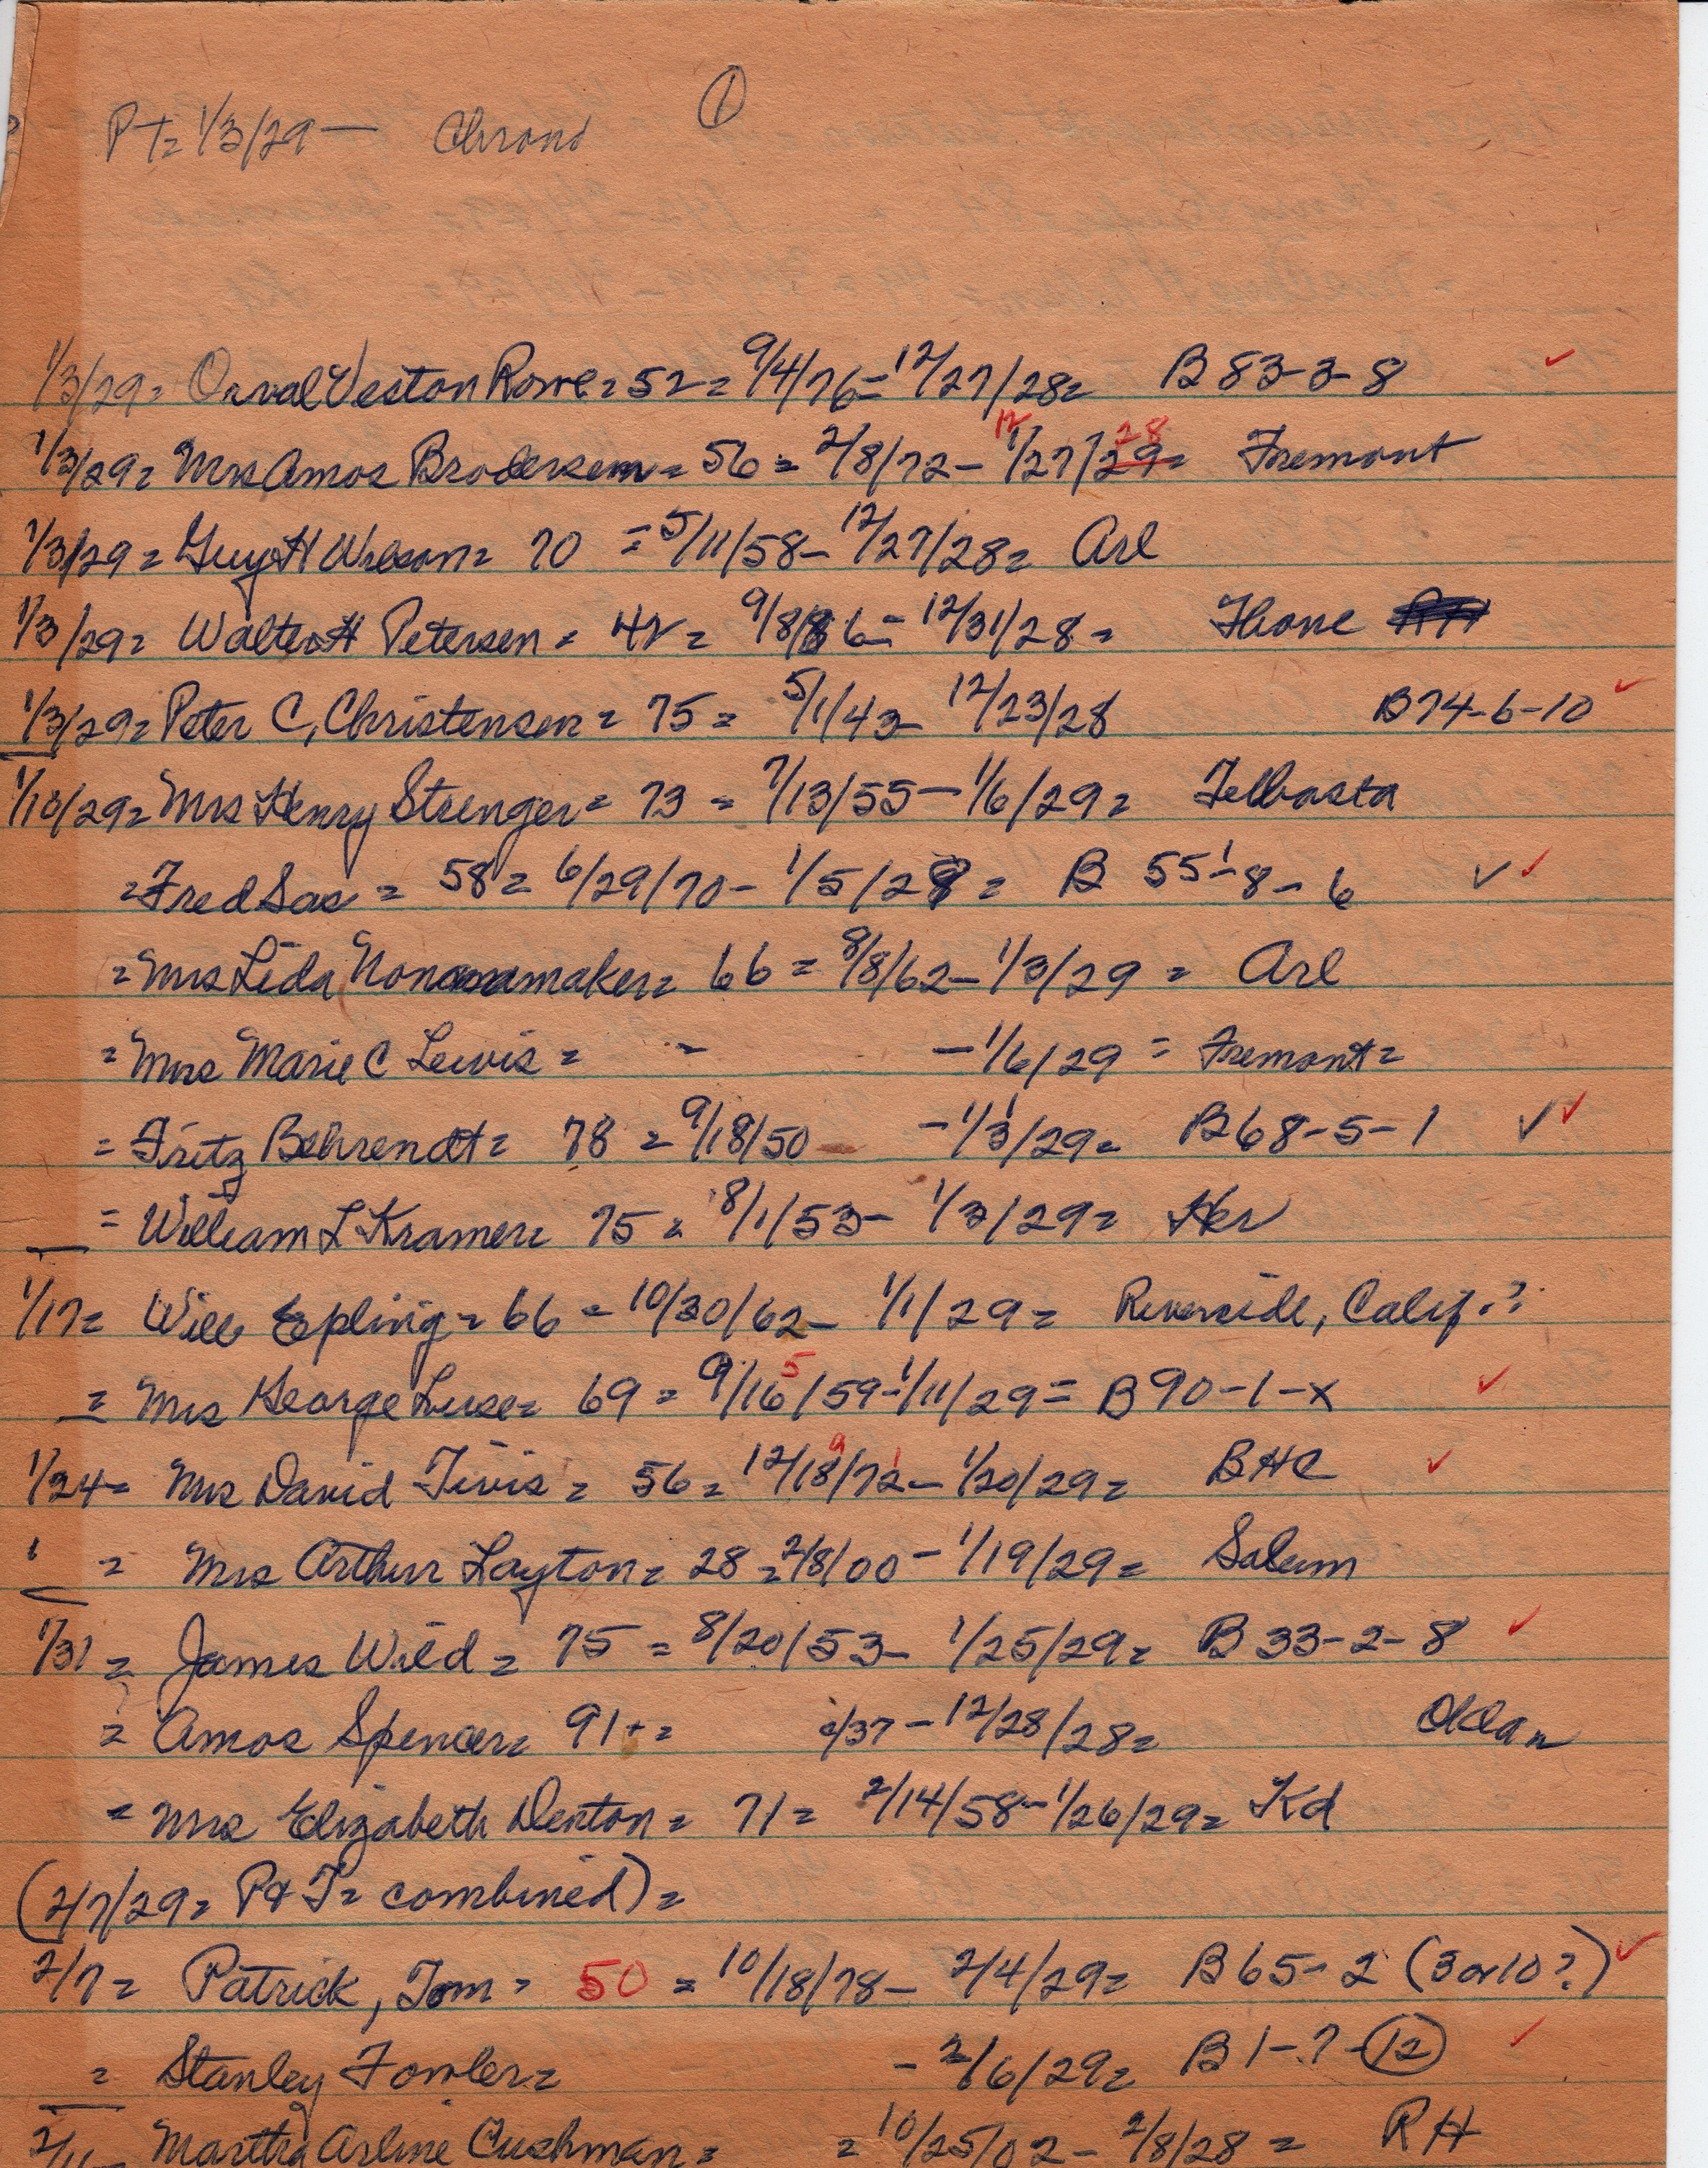 ①
PT= 1/3/29 — Chrono
1/3/29= Orval Veston Rowe= 52= 9/4/76= 12/27/28= B 83-3-8 ✓
1/3/29= Mrs Amos Brodersen= 56= 2/8/72- 12 1/27/29= 28 Fremont
1/3/29= Guy H Wilson= 70 = 5/11/58- 12/27/28= Arl
1/3/29= Walter H Petersen= 42= 9/8/86= 12/31/28= RH
1/3/29= Peter C, Christensen= 75= 5/1/43- 12/23/28 B74-6-10 ✓
1/10/29= Mrs Henry Strenger= 73 = 7/13/55-1/6/29= Telbasta
=Fred Sas = 58= 6/29/70- 1/5/29= B 55-8-6 ✓✓
=Mrs Leda Nonamaker= 66= 8/8/62-1/3/29= Arl
=Mrs Marie C Lewis= - -1/6/29= Fremont=
= Fritz Behrendt= 78 = 9/18/50 -1/3/29= B68-5-1 ✓✓
= William L Kramer= 75= 8/1/53- 1/3/29= Her
1/17= Will Epling= 66= 10/30/62- 1/1/29= Riverside, Calif.?
= Mrs George Luse= 69= 9/16/59-1/11/29= 5 B90-1-x ✓
1/24= Mrs David Tivis= 56= 12/18/72-1/20/29= 9 1 BHC ✓
= Mrs Arthur Layton= 28=2/8/00-1/19/29= Salem
1/31= James Wild= 75= 8/20/53- 1/25/29= B33-2-8 ✓
= Amos Spencer= 91+= c/37-12/28/28= Oklan
= Mrs Elizabeth Denton= 71= 2/14/58-1/26/29= Kd
(2/7/29= P&T= combined)=
2/7= Patrick, Tom= 50= 10/18/78- 2/4/29= B65-2 (3 or 10?) ✓
= Stanley Fowler= - 2/6/29= B1-7-12 ✓
Martha Arline Cushman= = 10/25/02- 2/8/28= RH